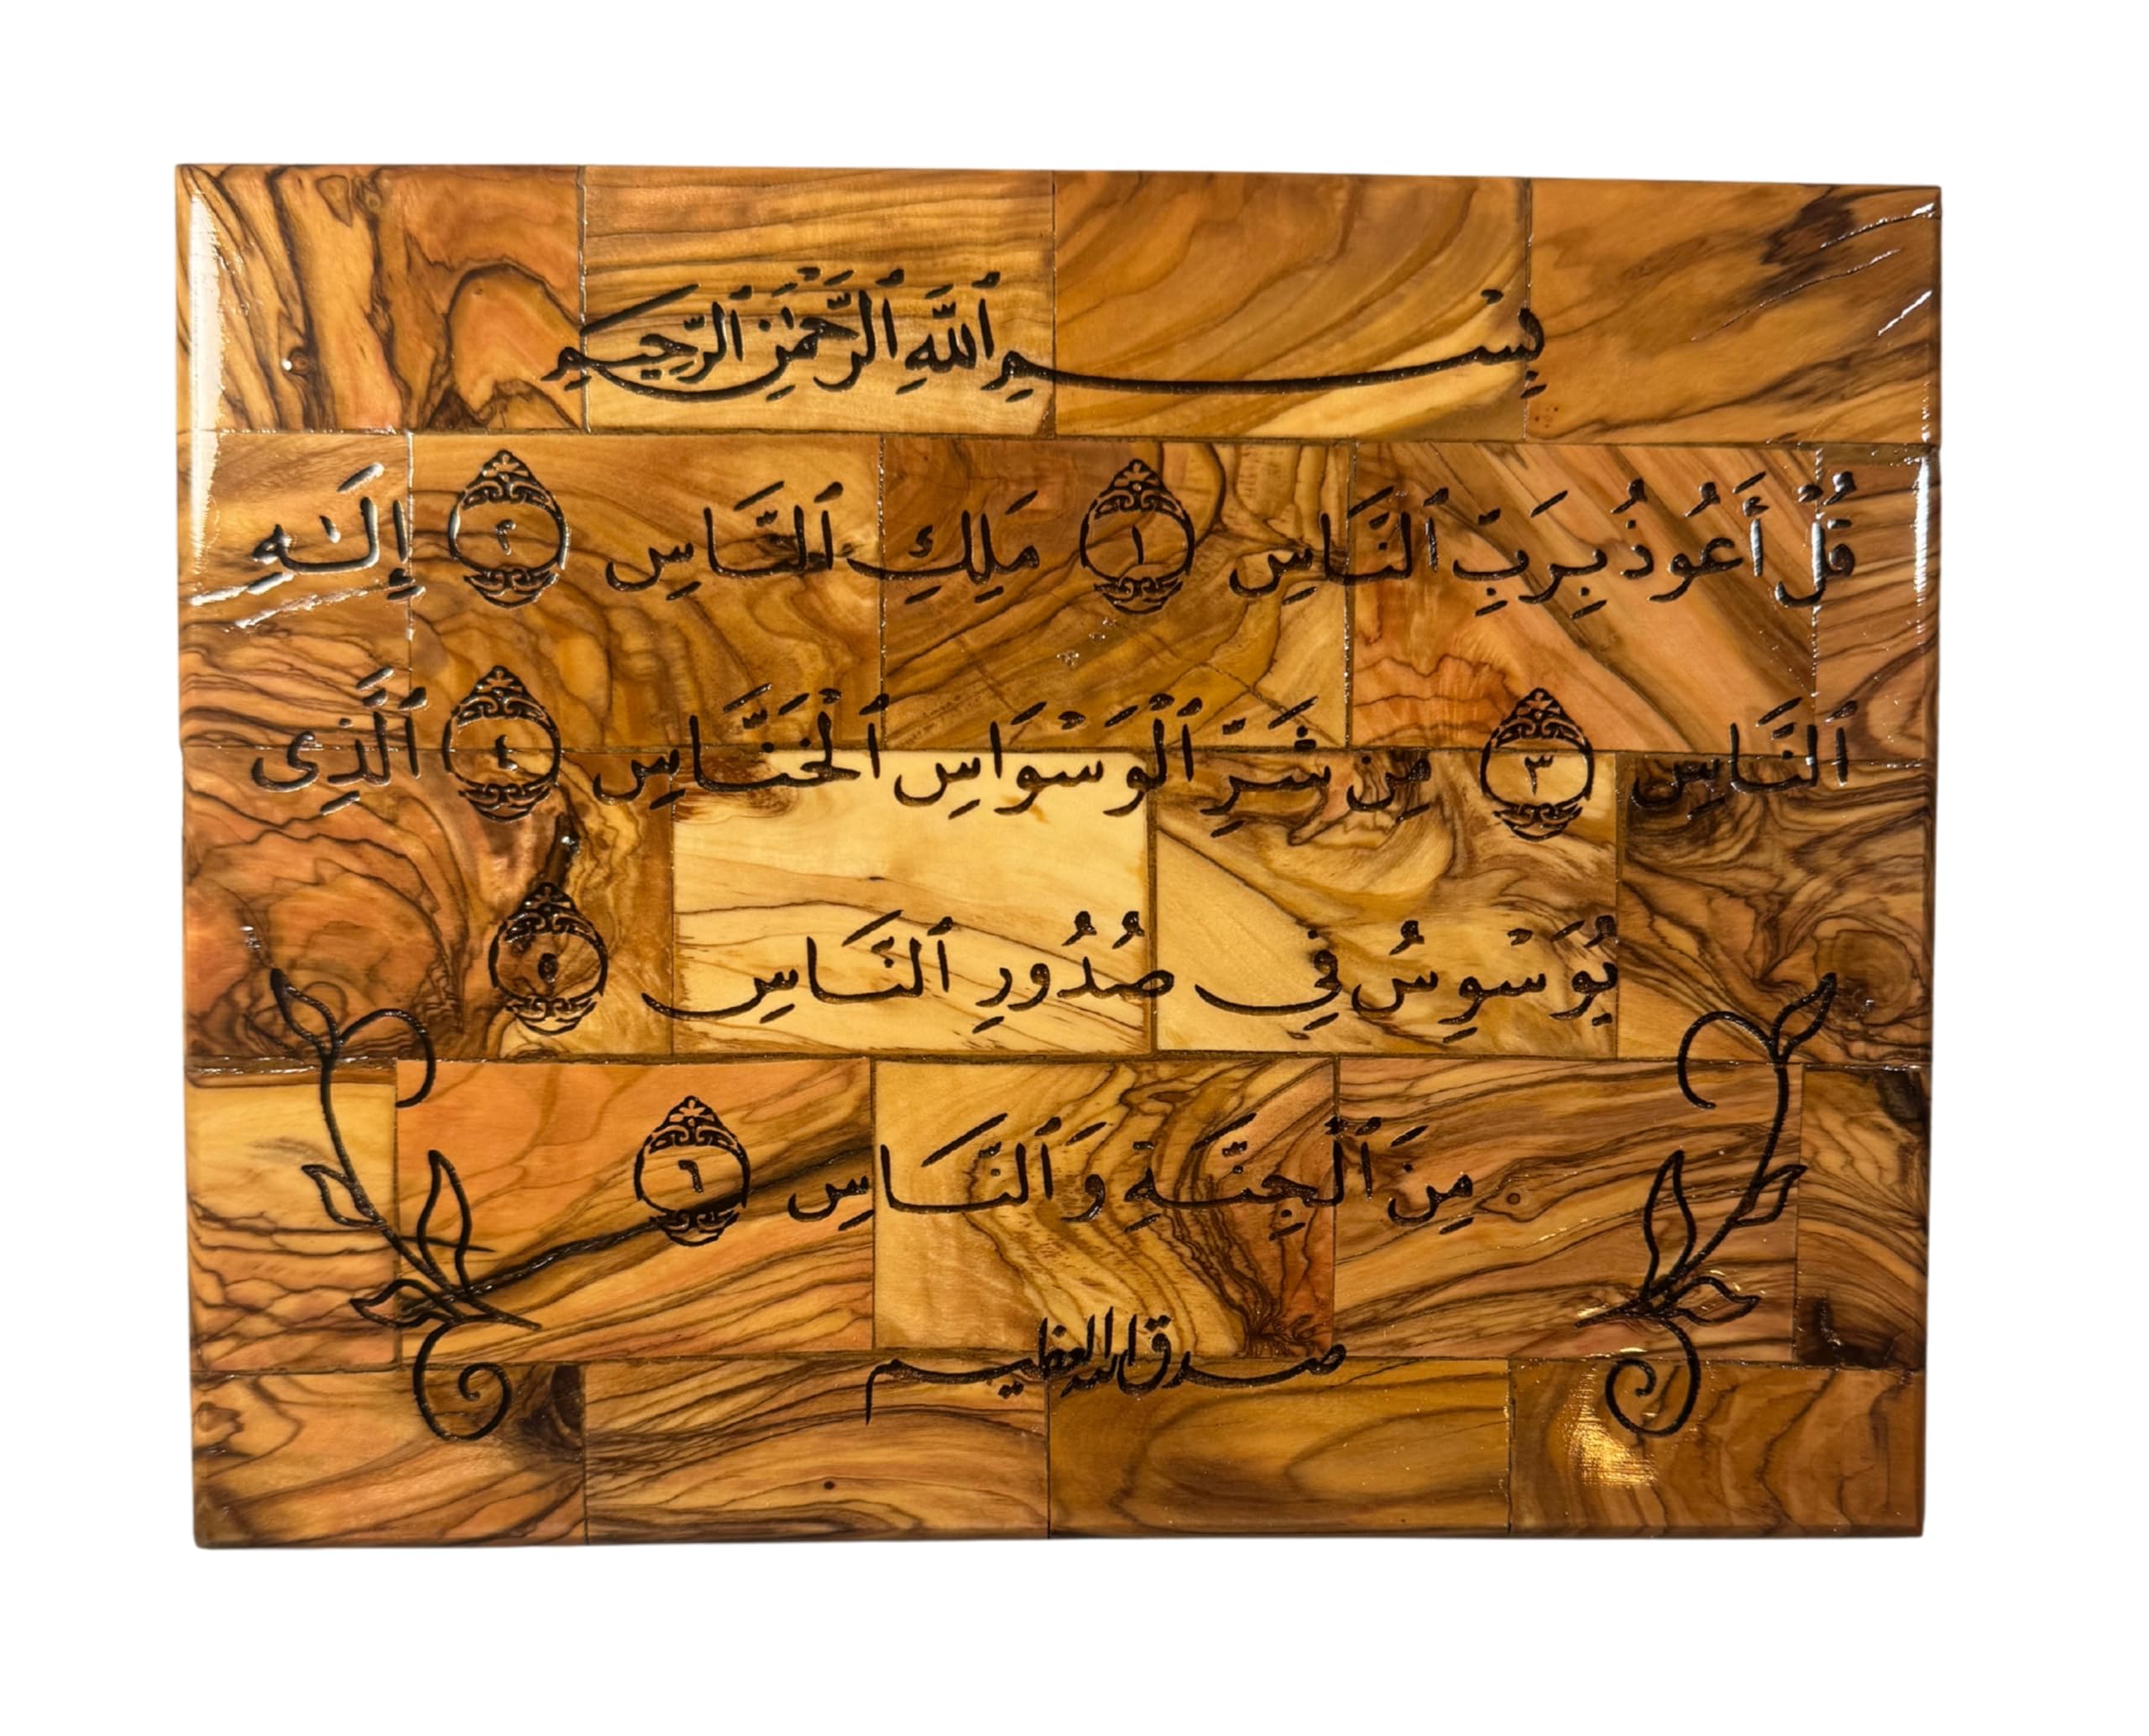 بِسْمِ ٱللَّهِ ٱلرَّحْمَٰنِ ٱلرَّحِيمِ
قُلْ أَعُوذُ بِرَبِّ ٱلنَّاسِ ١ مَلِكِ ٱلنَّاسِ ٢ إِلَٰهِ
ٱلنَّاسِ ٣ مِن شَرِّ ٱلْوَسْوَاسِ ٱلْخَنَّاسِ ٤ ٱلَّذِى
يُوَسْوِسُ فِي صُدُورِ ٱلنَّاسِ ٥
مِنَ ٱلْجِنَّةِ وَٱلنَّاسِ ٦
صدق الله العظيم